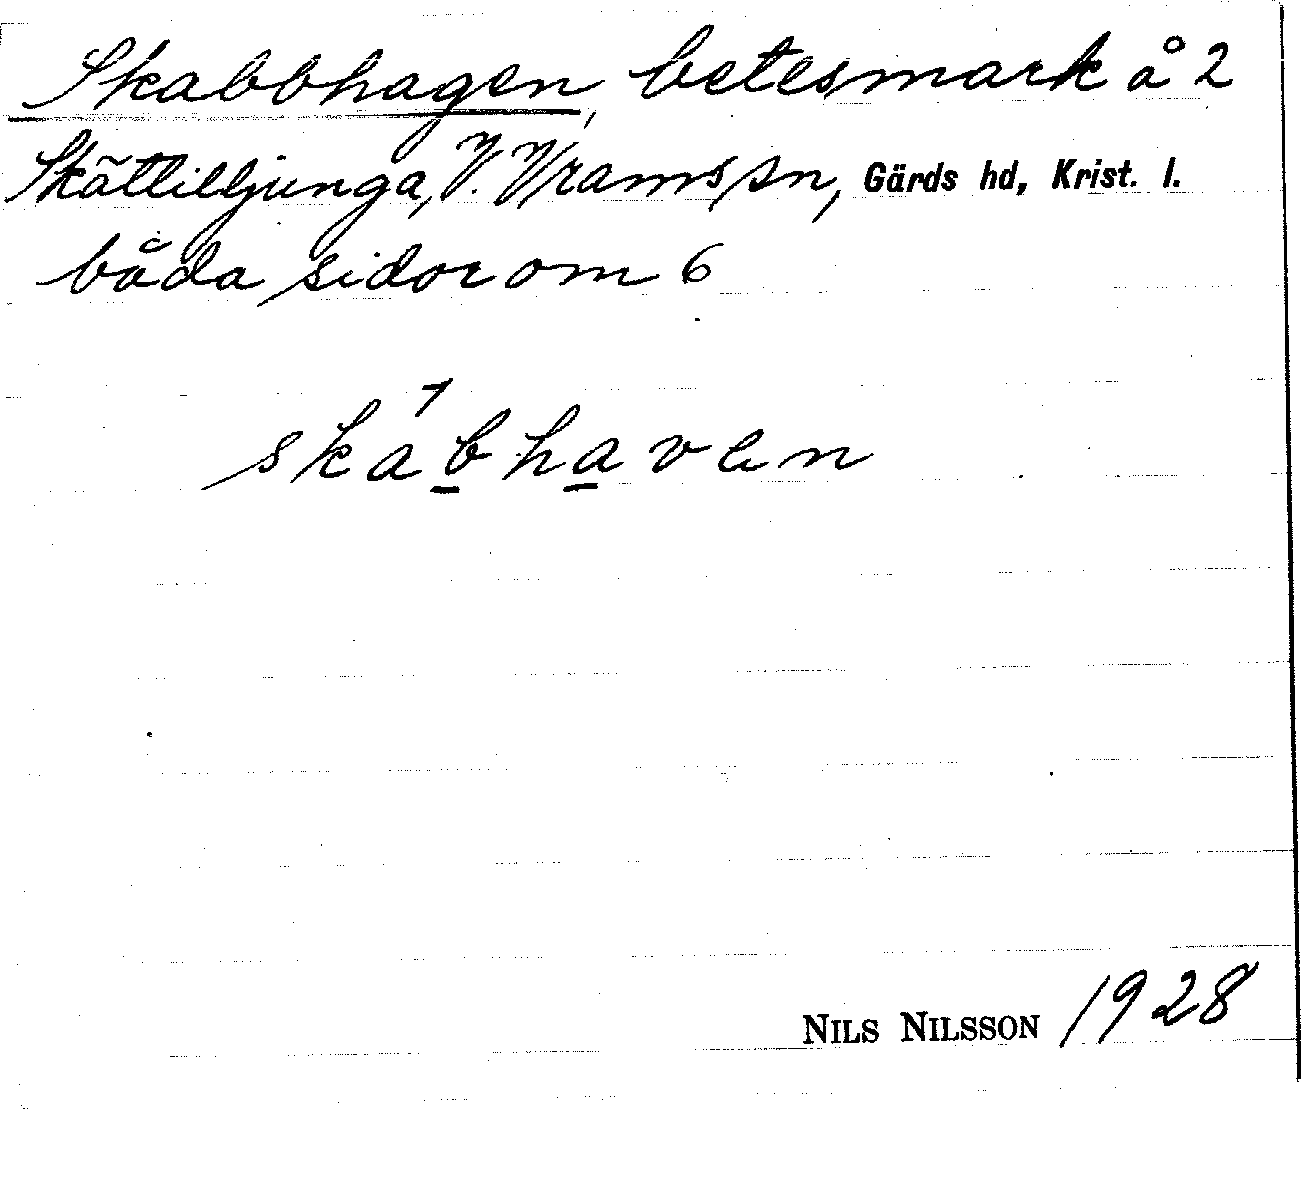 Skabbhagen, betesmark å 2
Skättilljunga, V. Vrams sn, Gärds hd, Krist. l.
båda sidor om 6
skabhaven
NILS NILSSON 1928